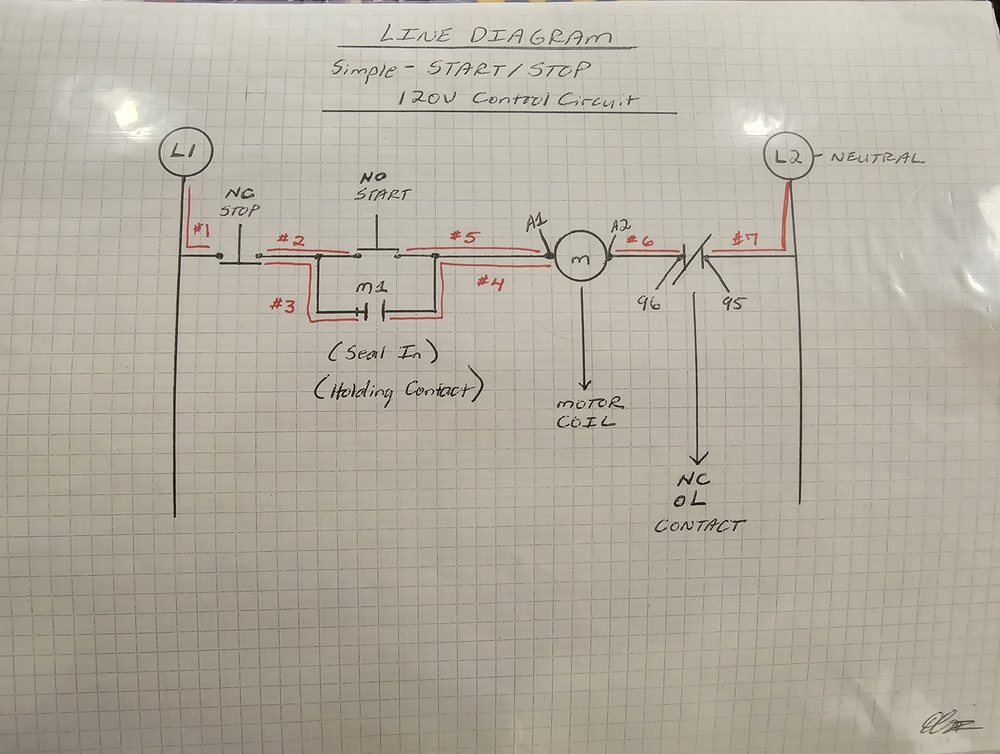 LINE DIAGRAM
Simple - START/STOP
120V Control Circuit
L1
L2 - NEUTRAL
NC
STOP
NO
START
#1
#2
#5
A1
m
A2
#6
#7
#3
m1
#4
96
95
(Seal In)
(Holding Contact)
MOTOR
COIL
NC
OL
CONTACT